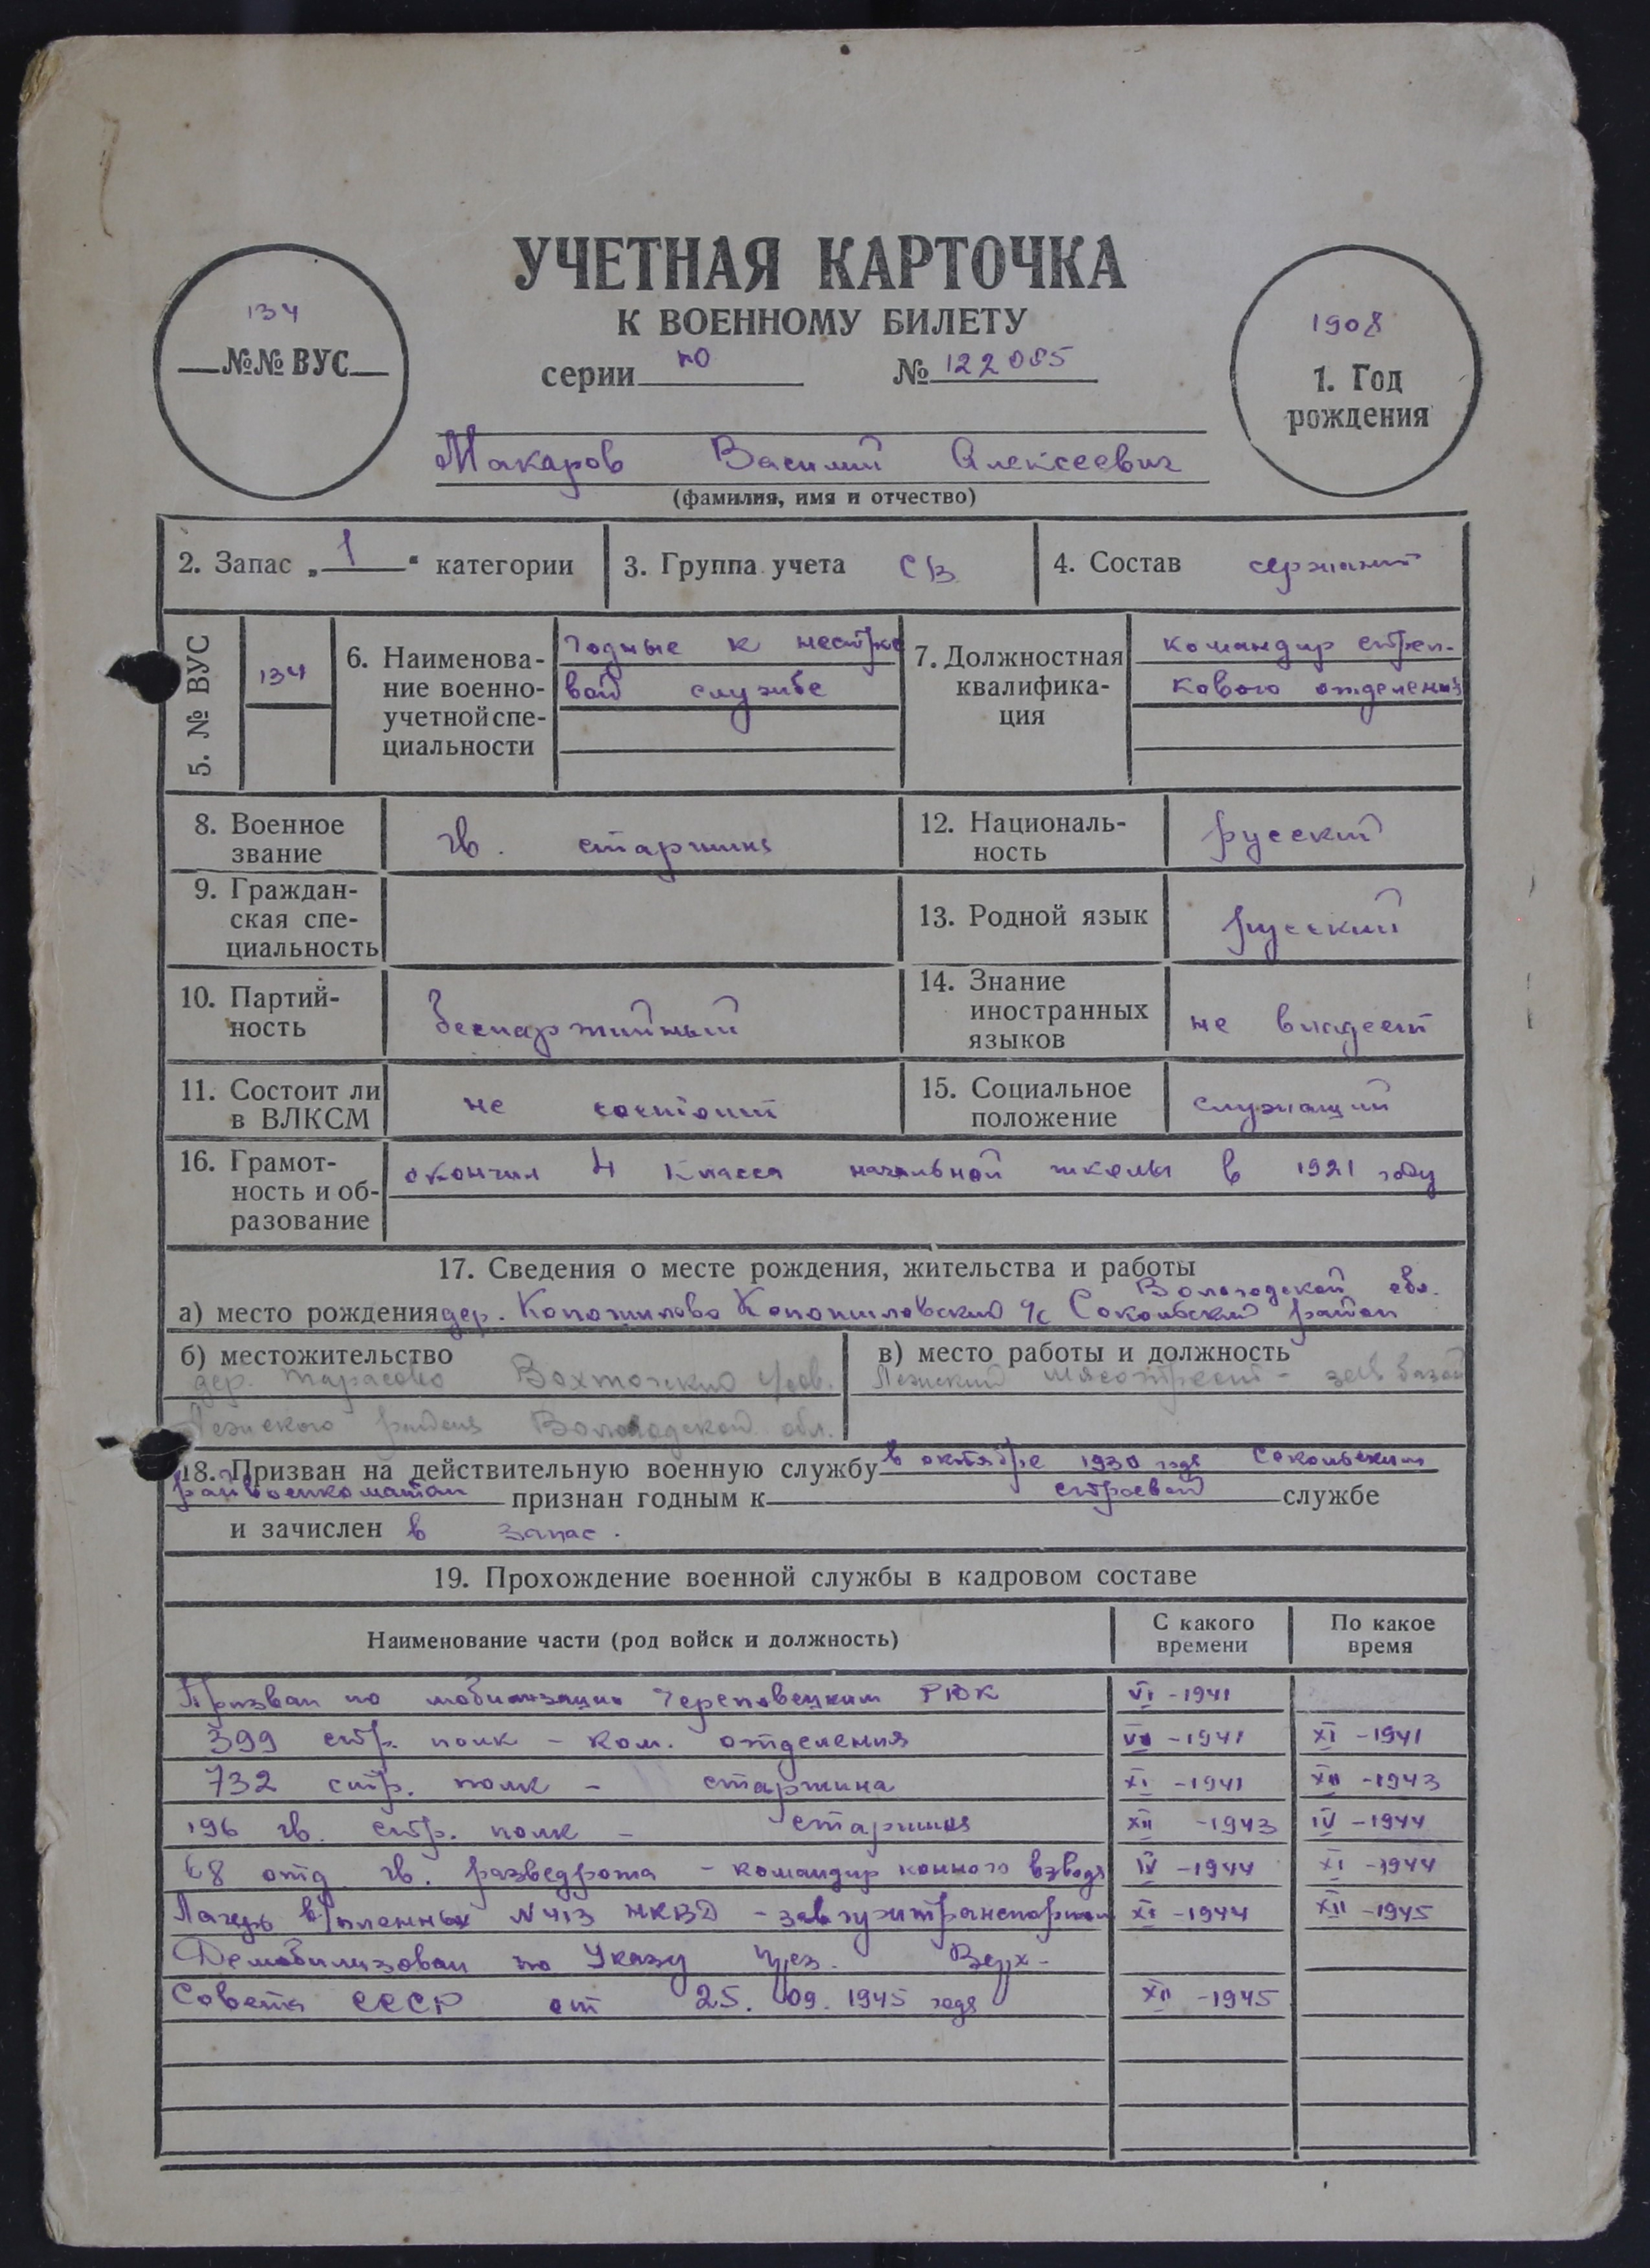 УЧЕТНАЯ КАРТОЧКА
К ВОЕННОМУ БИЛЕТУ
серии ПО № 122085
134
№№ ВУС
1908
1. Год
рождения
Макаров Василий Алексеевич
(фамилия, имя и отчество)
2. Запас „1“ категории
3. Группа учета СВ
4. Состав сержант
5. № ВУС
134
6. Наименова-
ние военно-
учетной спе-
циальности
годные к нестрое
вой службе
7. Должностная
квалифика-
ция
командир стрел-
кового отделения
8. Военное
звание
гв. старшина
12. Националь-
ность
русский
9. Граждан-
ская спе-
циальность
13. Родной язык
русский
10. Партий-
ность
беспартийный
14. Знание
иностранных
языков
не владеет
11. Состоит ли
в ВЛКСМ
не состоит
15. Социальное
положение
служащий
16. Грамот-
ность и об-
разование
окончил 4 класса начальной школы в 1921 году
17. Сведения о месте рождения, жительства и работы
Вологодской обл.
а) место рождения дер. Копошилово Копошиловский с/с Сокольский район
б) местожительство
дер. Тарасово Вохтожский с/сов.
Лежского района Вологодской обл.
в) место работы и должность
Лежский мясотрест - зав базой
18. Призван на действительную военную службу в октябре 1930 года Сокольским
райвоенкоматом признан годным к строевой службе
и зачислен в запас.
19. Прохождение военной службы в кадровом составе
Наименование части (род войск и должность)
С какого
времени
По какое
время
Призван по мобилизации Череповецким РВК VI - 1941
399 стр. полк - ком. отделения VII - 1941 XI - 1941
732 стр. полк - старшина XI - 1941 XII - 1943
196 гв. стр. полк - старшина XII - 1943 IV - 1944
68 отд. гв. разведрота - командир конного взвода IV - 1944 XI - 1944
Лагерь в/пленных № 413 НКВД - зав гужтранспортом XI - 1944 XII - 1945
Демобилизован по Указу През. Верх-
Совета СССР от 25.09.1945 года XII - 1945